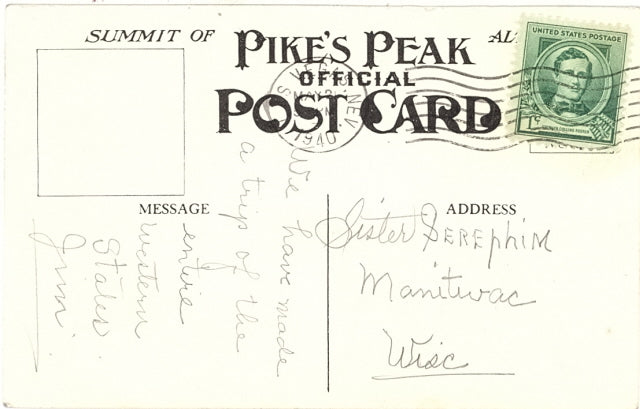 SUMMIT OF PIKE'S PEAK
OFFICIAL
POST CARD
VEGAS, NEV.
1940
UNITED STATES POSTAGE
1¢
STEPHEN COLLINS FOSTER
MESSAGE
We have made
a trip of the
entire
western
States.
ADDRESS
Sister SEREPHIM
Manitwac
Wisc